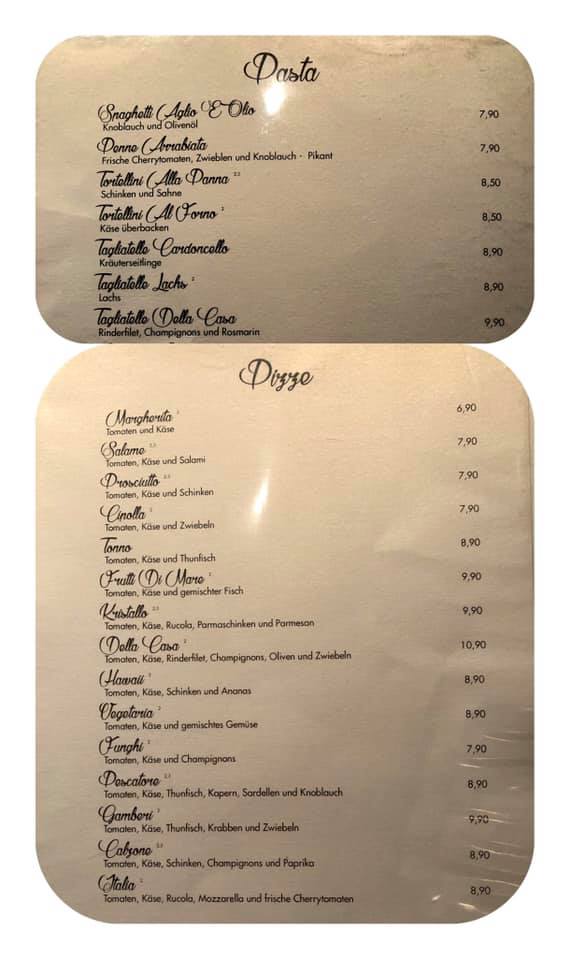 Pasta
Spaghetti Aglio E Olio 7,90
Knoblauch und Olivenöl
Penne Arrabiata 7,90
Frische Cherrytomaten, Zwieblen und Knoblauch - Pikant
Tortellini Alla Panna 2,3 8,50
Schinken und Sahne
Tortellini Al Forno 2 8,50
Käse überbacken
Tagliatelle Cardoncello 8,90
Kräuterseitlinge
Tagliatelle Lachs 2 8,90
Lachs
Tagliatelle Della Casa 9,90
Rinderfilet, Champignons und Rosmarin
Pizze
Margherita 6,90
Tomaten und Käse
Salame 7,90
Tomaten, Käse und Salami
Prosciutto 7,90
Tomaten, Käse und Schinken
Cipolla 7,90
Tomaten, Käse und Zwiebeln
Tonno 8,90
Tomaten, Käse und Thunfisch
Frutti Di Mare 9,90
Tomaten, Käse und gemischter Fisch
Kristallo 9,90
Tomaten, Käse, Rucola, Parmaschinken und Parmesan
Della Casa 10,90
Tomaten, Käse, Rinderfilet, Champignons, Oliven und Zwiebeln
Hawaii 8,90
Tomaten, Käse, Schinken und Ananas
Vegetaria 8,90
Tomaten, Käse und gemischtes Gemüse
Funghi 7,90
Tomaten, Käse und Champignons
Pescatore 8,90
Tomaten, Käse, Thunfisch, Kapern, Sardellen und Knoblauch
Gamberi 9,90
Tomaten, Käse, Thunfisch, Krabben und Zwiebeln
Calzone 8,90
Tomaten, Käse, Schinken, Champignons und Paprika
Italia 8,90
Tomaten, Käse, Rucola, Mozzarella und frische Cherrytomaten